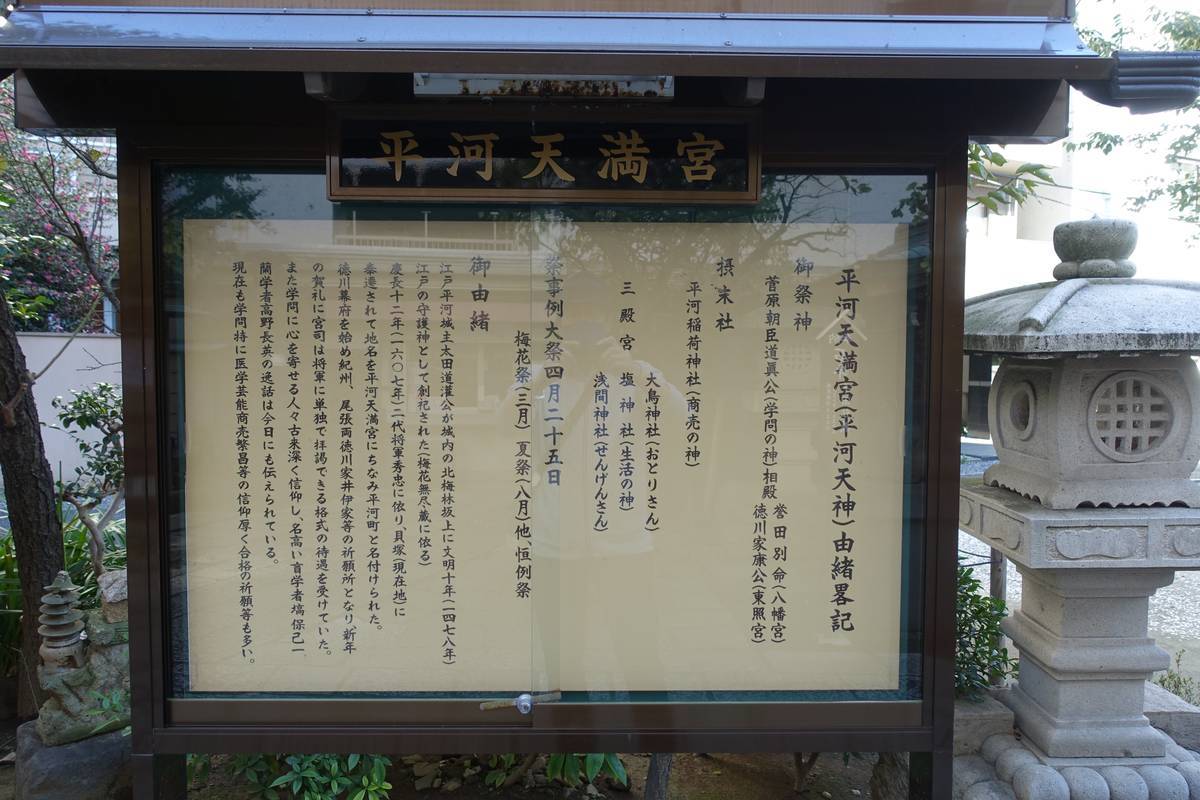 平河天満宮
平河天満宮(平河天神)由緒畧記
御祭神
菅原朝臣道眞公(学問の神)相殿
誉田別命(八幡宮)
徳川家康公(東照宮)
摂末社
平河稲荷神社(商売の神)
三殿宮
大鳥神社(おとりさん)
塩神社(生活の神)
浅間神社(せんげんさん)
祭事例大祭四月二十五日
梅花祭(三月)夏祭(八月)他、恒例祭
御由緒
江戸平河城主太田道灌公が城内の北梅林坂上に文明十年(一四七八年)
江戸の守護神として創祀された(梅花無尽蔵に依る)
慶長十二年(一六〇七年)二代将軍秀忠に依り、貝塚(現在地)に
奉遷されて地名を平河天満宮にちなみ平河町と名付けられた。
徳川幕府を始め紀州、尾張両徳川家井伊家等の祈願所となり、新年
の賀礼に宮司は将軍に単独で拝謁できる格式の待遇を受けていた。
また学問に心を寄せる人々古来深く信仰し、名高い盲学者塙保己一
蘭学者高野長英の逸話は今日にも伝えられている。
現在も学問特に医学芸能商売繁昌等の信仰厚く合格の祈願等も多い。